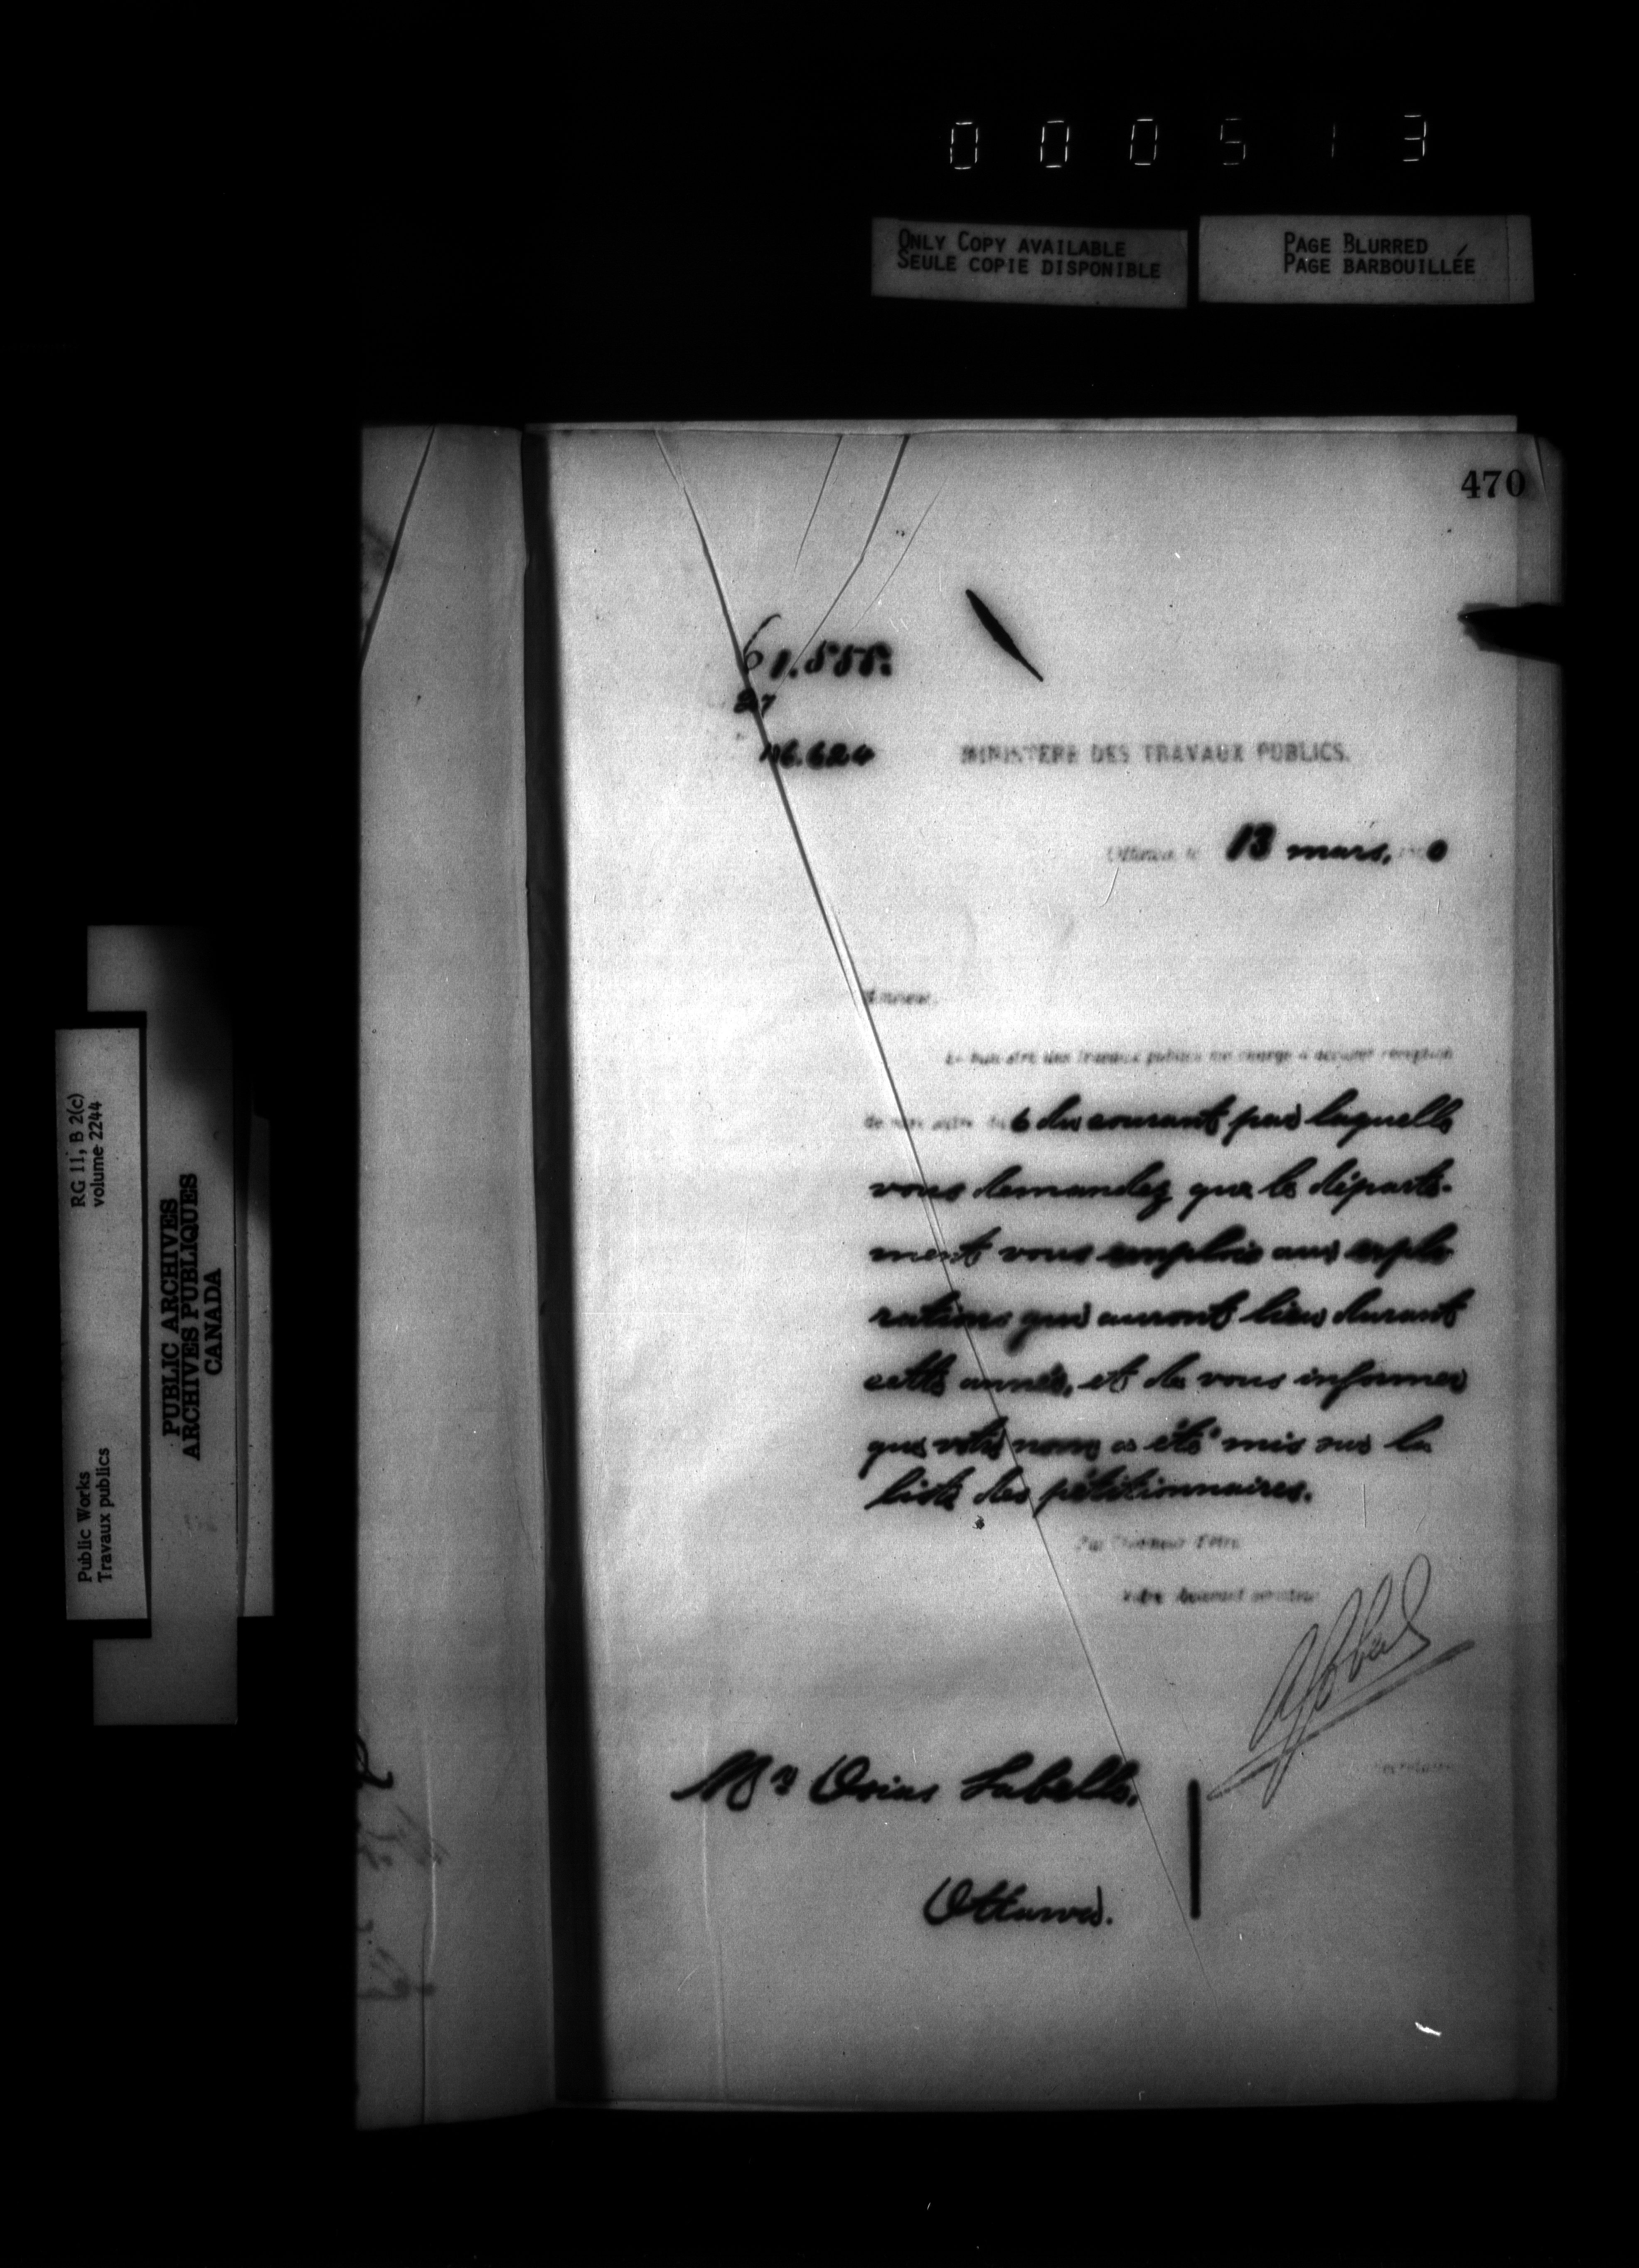 000513
ONLY COPY AVAILABLE
SEULE COPIE DISPONIBLE
PAGE BLURRED
PAGE BARBOUILLÉE
470
61.555.
27
MINISTERE DES TRAVAUX PUBLICS.
Ottawa, le 13 mars,
Monsieur,
Le Ministre des Travaux publics me charge d'accuser réception
de votre lettre du 6 du courant par laquelle
vous demandez que le départe-
ment vous emploie aux explo
rations qui auront lieu durant
cette année, et de vous informer
que votre nom a été mis sur la
liste des pétitionnaires.
J'ai l'honneur d'être
Votre obéissant serviteur
Secrétaire
Mr Osias Labelle,
Ottawa.
RG 11, B 2(c)
volume 2244
Public Works
Travaux publics
PUBLIC ARCHIVES
ARCHIVES PUBLIQUES
CANADA